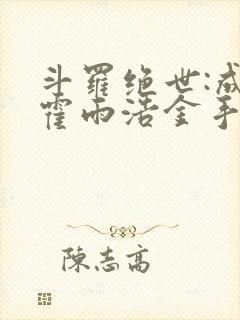 斗羅绝世:成
霍雨浩金手
陳志高